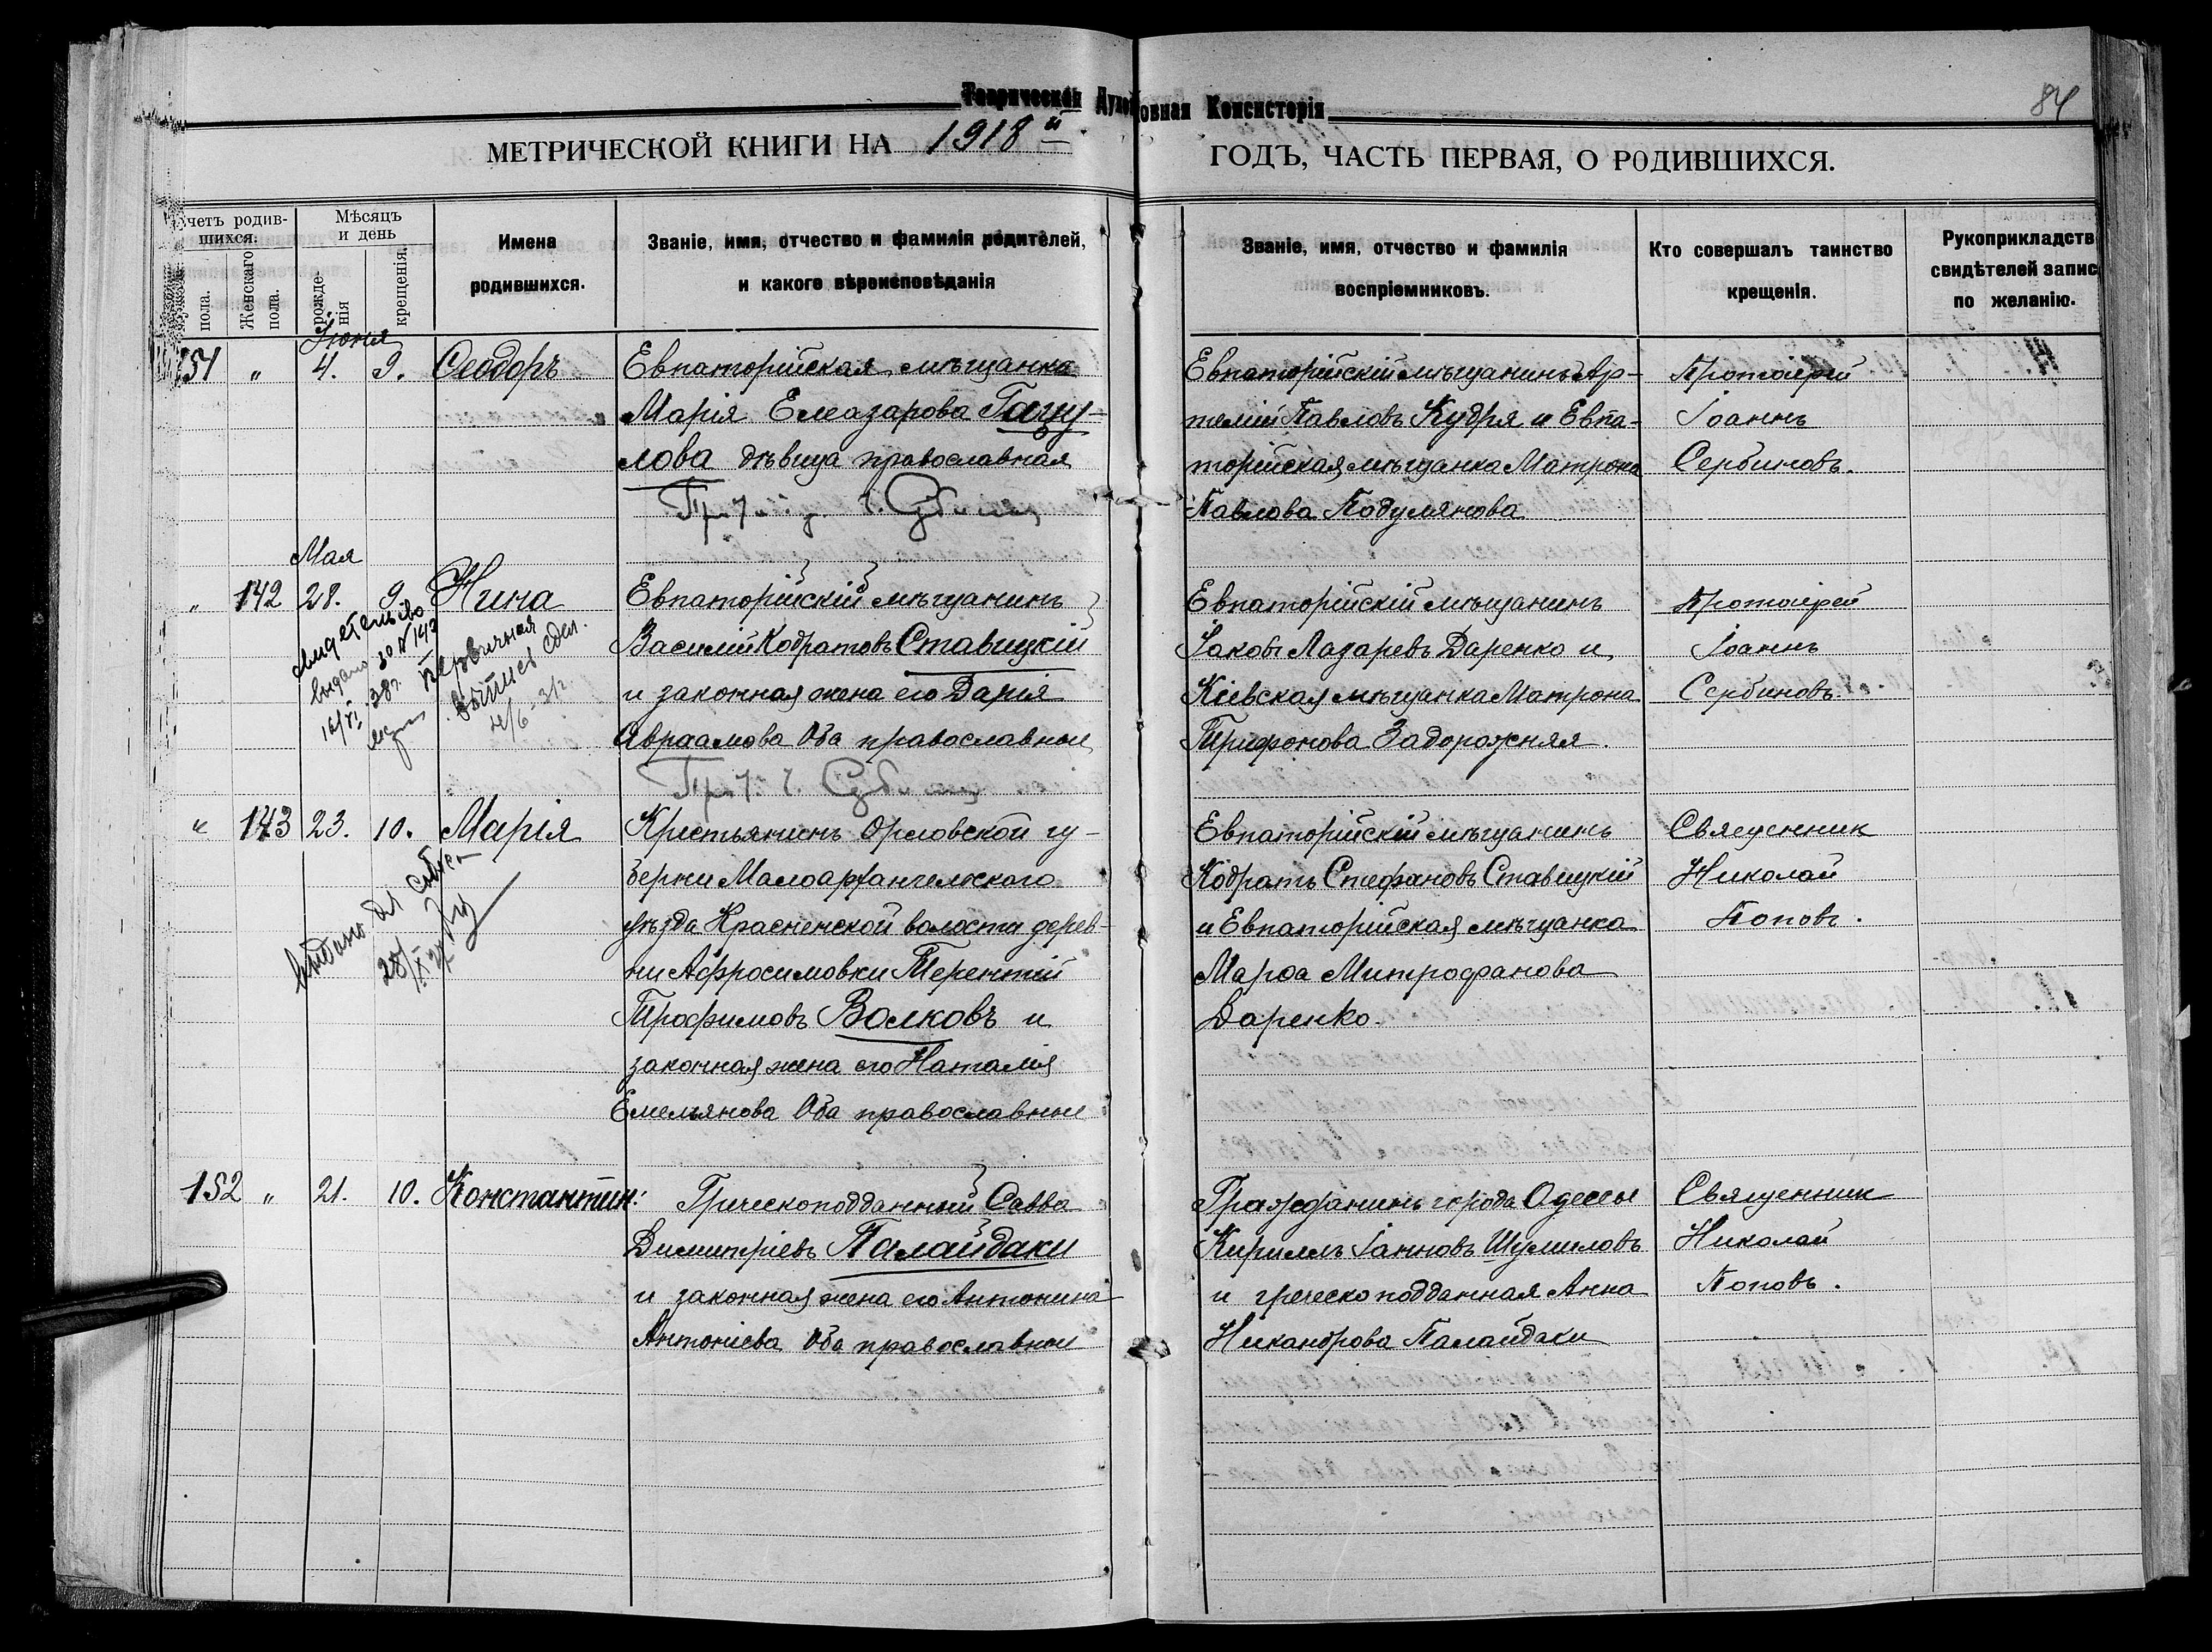 Таврическая Духовная Консисторія
84
МЕТРИЧЕСКОЙ КНИГИ НА 1918й ГОДЪ, ЧАСТЬ ПЕРВАЯ, О РОДИВШИХСЯ.
Счетъ родившихся.
пола.
Женскаго пола.
Мѣсяцъ и день
рожденія
крещенія.
Имена
родившихся.
Званіе, имя, отчество и фамилія родителей,
и какого вѣроисповѣданія
Званіе, имя, отчество и фамилія
воспріемниковъ.
Кто совершалъ таинство
крещенія.
Рукоприкладств
свидѣтелей запис
по желанію.
Іюня
151 " 4. 9. Ѳеодоръ
Евпаторійская мѣщанка
Марія Елеазарова Гацу-
лова дѣвица православная
Евпаторійскій мѣщанинъ Ар-
темій Павловъ Кудря и Евпа-
торійская мѣщанка Матрона
Павлова Подулянова
Протоіерей
Іоаннъ
Сербиновъ.
Мая
" 142 28. 9. Нина
свидетельство
выдано за №142
16/VI 38г.
первичная
выпись сдел.
4/6-31г
Евпаторійскій мѣщанинъ
Василій Кодратовъ Ставицкій
и законная жена его Дарія
Авраамова Оба православные
Евпаторійскій мѣщанинъ
Іаковъ Лазаревъ Даренко и
Кіевская мѣщанка Матрона
Трифонова Задорожняя.
Протоіерей
Іоаннъ
Сербиновъ.
" 143 23. 10. Марія
Крестьянинъ Орловской гу-
берни Малоархангельского
уѣзда Красненской волости дерев-
ни Афросимовки Терентій
Трофимовъ Волковъ и
законная жена его Наталія
Емельянова Оба православные
Евпаторійскій мѣщанинъ
Кодратъ Стефановъ Ставицкій
и Евпаторійская мѣщанка
Марѳа Митрофанова
Даренко.
Священникъ
Николай
Поповъ.
152 " 21. 10. Константин:
Греческоподданный Савва
Димитріевъ Палайдаки
и законная жена его Антонина
Антоніева Оба православные
Гражданинъ города Одессы
Кириллъ Іанновъ Шумиловъ
и греческоподданная Анна
Никандрова Палайдаки
Священник
Николай
Поповъ.